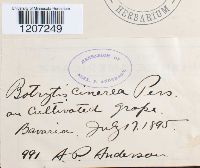 HERBARIUM
University of Minnesota Herbarium
1207249
HERBARIUM OF
ALEX. P. ANDERSON
Botrytis cinerea Pers.
on Cultivated grape.
Bavaria. July 17. 1895.
991 A. P. Anderson